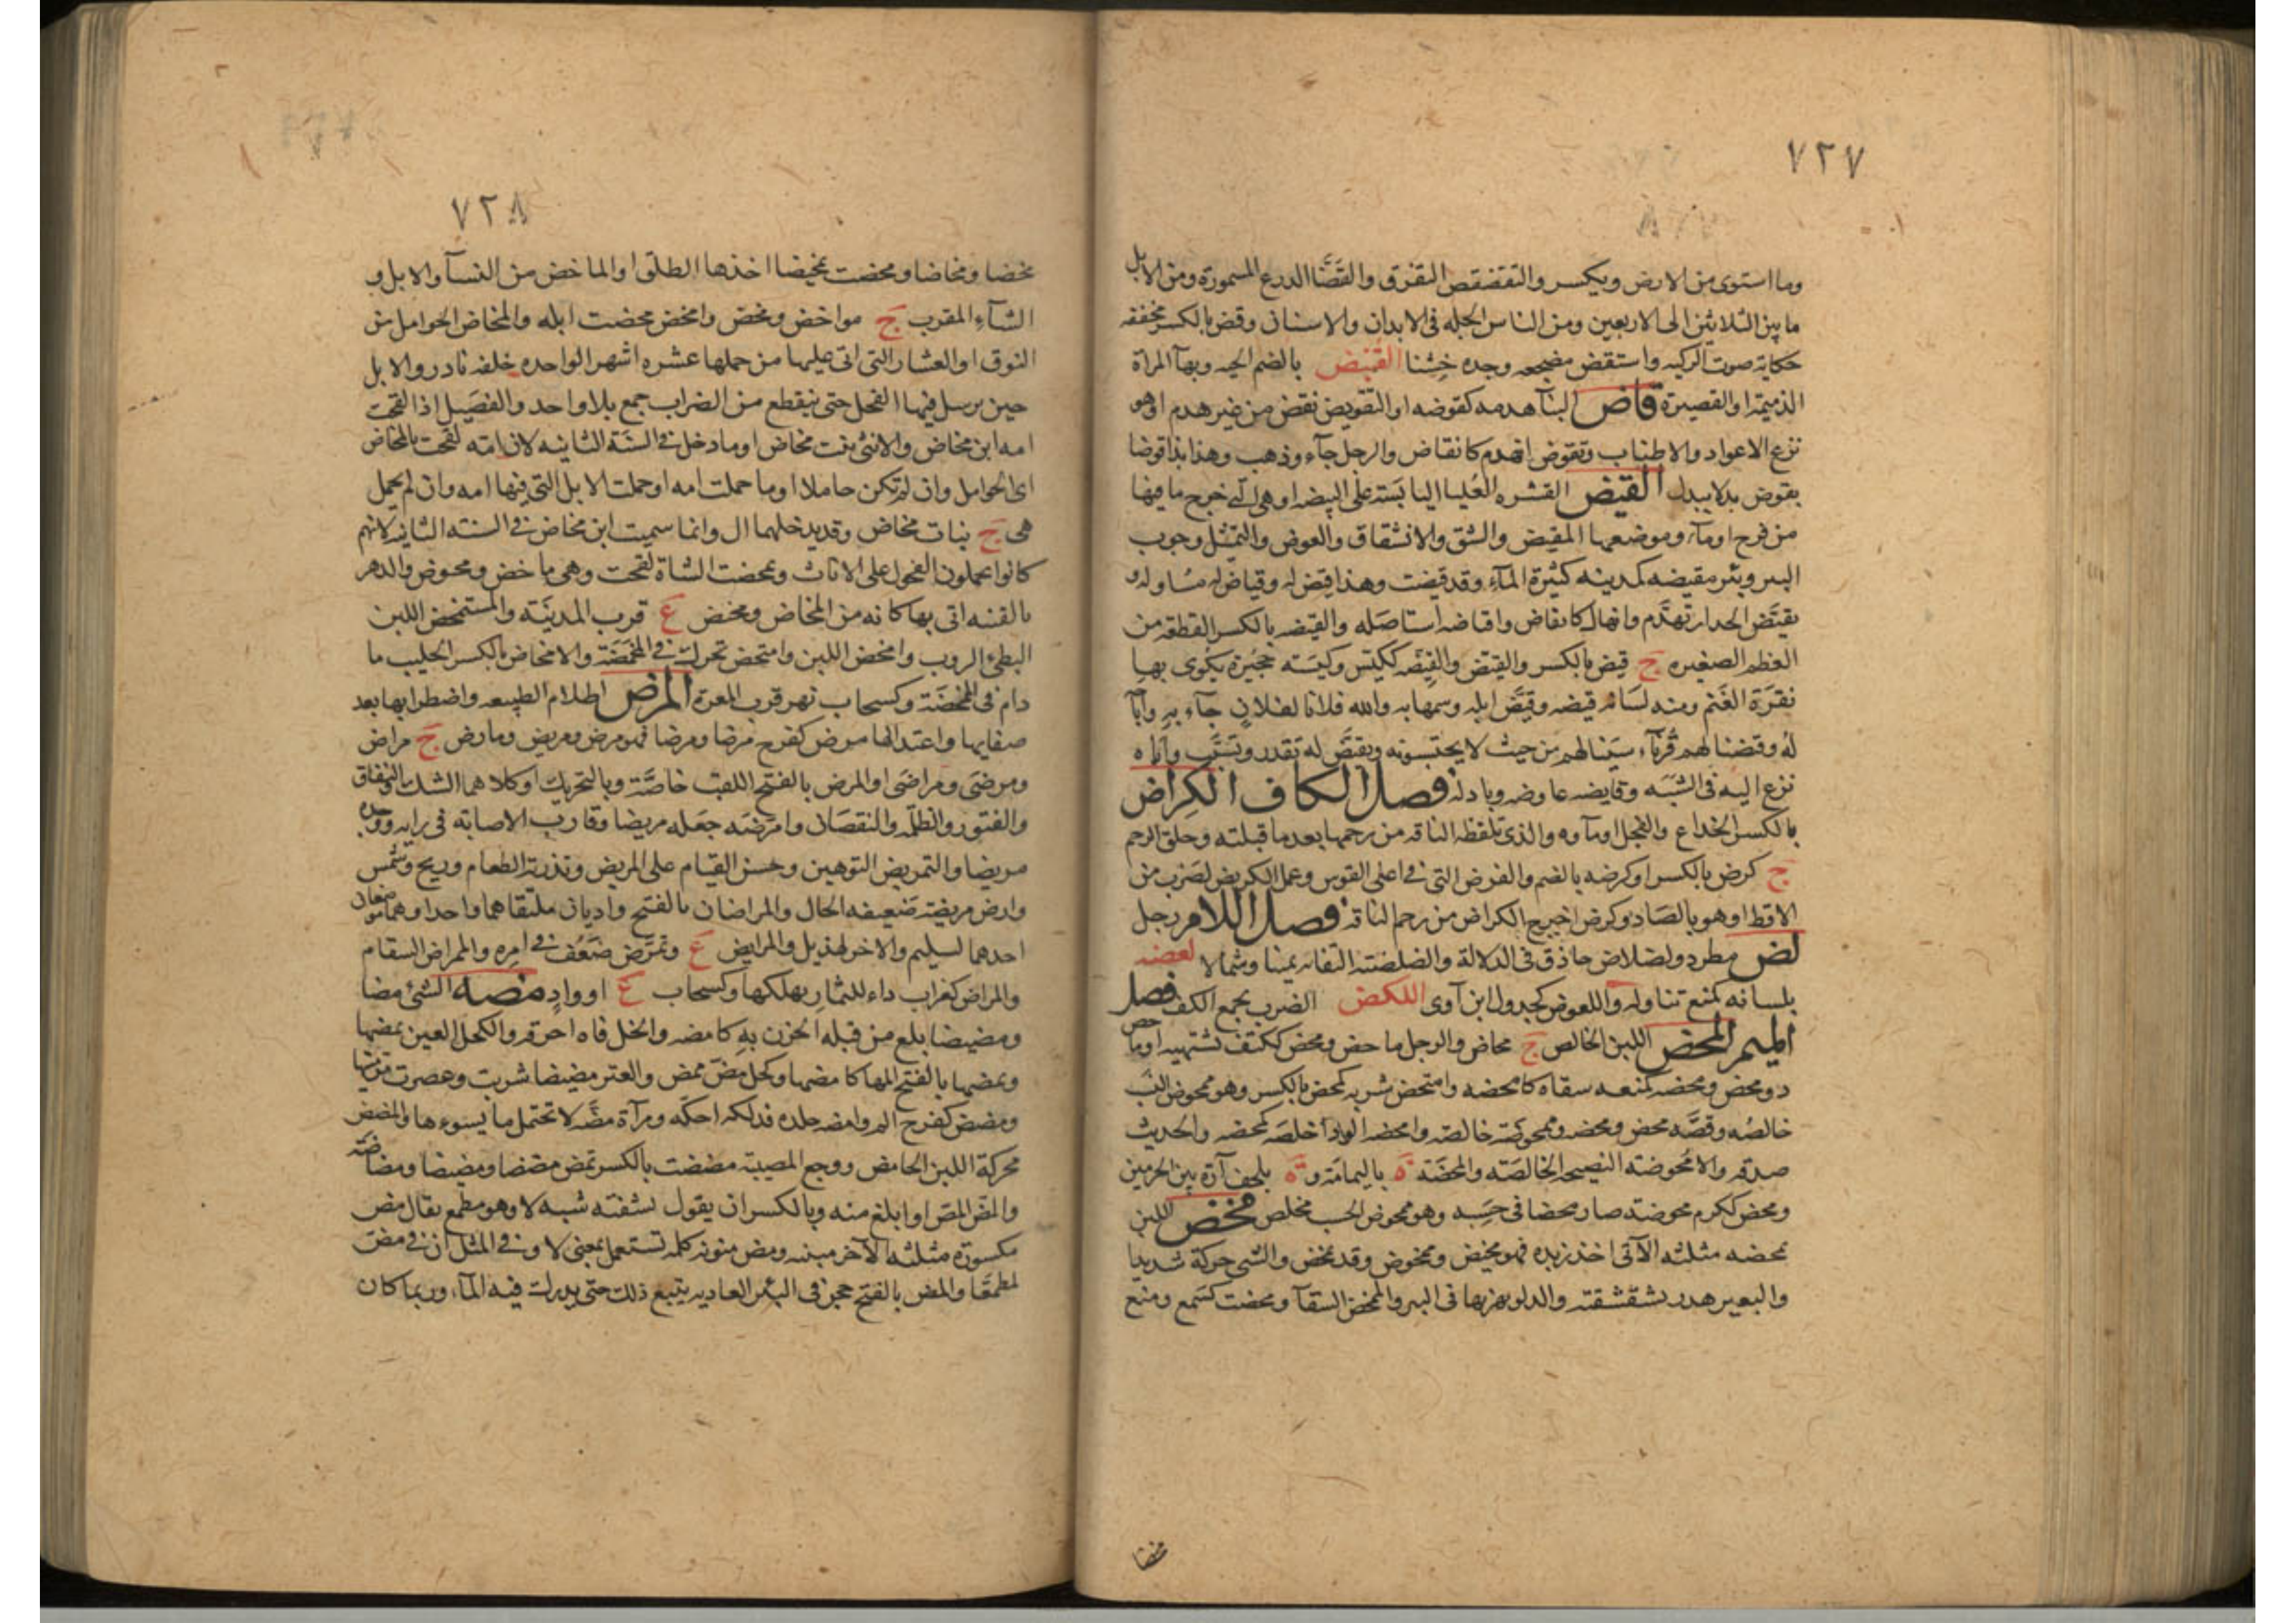 ٧٢٧
وما استوى من الارض ويكسر والتقضقض التفرق والقضّا الدرع المسمورة ومن الابل
ما بين الثلاثين الى الاربعين ومن الناس الجله فى الابدان والاسنان وقض بالكسر مخففه
حكاية صوت الركبه واستقض مضجعه وجده خشنا القنبض بالضم الحيه وبهآ المرأة
الذميمة او القصيرة قاض البنآ هدمه كقوضه او التقويض نقض من غير هدم او هو
نزع الاعواد والاطناب وتقوض انهدم كانقاض والرجل جآء وذهب وهذا بذا قوضا
بقوض بدلا ببدل القيض القشره العليا اليابسته على البيضه او هى التى خرج ما فيها
من فرح او مآء وموضعهما المقيض والشق والانشقاق والعوض والتمثل وجوب
البير وبئر مقيضه كمدينه كثيرة المآء وقد قيضت وهذا قيض له وقياض له مساو له و
تقيّض الجدار تهدّم وانهال كانقاض واقتاضه استاصله والقيضه بالكسر القطعه من
العظم الصغيره ج قيض بالكسر والقيض والقيضه ككيّس وكيسته حجيرة يكوى بها
نقرة الغنم ومنه لسانه قيضه وقيّض ابله وسمها به والله فلانا لفلان جآء به واباّ
له وقيضنا لهم قرنآء سببنا لهم من حيث لا يحتسبونه وتقيّض له تقدر وتسبّب واباه
نزع اليه فى الشبه وقايضه عاوضه وبادله فصل الكاف الكراض
بالكسر الخداع والفحل او مآءوه والذى تلفظه الناقه من رحمها بعد ما قبلته وحلق الرحم
ج كرض بالكسر او كرضه بالضم والفرض التى فى اعلى القوس وعمل الكريض لضرب من
الاقط او هو بالصاد وكرض اخرج الكراض من رحم لناقه فصل اللام رجل
لض مطرد ولضلاض حاذق فى الدلالة والضلضته التفاته يمينا وشمالا لعضه
بلسانه كمنع تناوله واللعوض كجدول ابن آوى اللكض الضرب بجمع الكف فصل
الميم المحض اللبن الخالص ج محاض والرجل ماحض ومحض ككتف تشتهيه او ما حض
ذو محض ومحضه كمنعه سقاه كامحضه وامتحض شربه كمحض بالكسر وهو ممحوض النسب
خالصه وفضّه محض ومحضه وممحوضة خالصة وامحضه الود اخلصه كمحضه والحديث
صدقه والامحوضته النصيحه الخالصته والمحضته ة باليمامة وة بلحف آرة بين الحرمين
ومحض ككرم محوضته صار محضا فى حسبه وهو ممحوض الحسب مخلص مخض اللبن
يمخضه مثلثه الآتى اخذ زبده فهو مخيض وممخوض وقد تمخض والشى حركه شديدا
والبعير هدر بشقشقته والدلو نهزبها فى البير والممخض السقآ ومخضت كسمع ومنع
مخضا
٧٢٨
مخضا ومخاضا ومخضت تمخيضا اخذها الطلق او الماخض من النسآ والابل و
الشآء المقرب ج مواخض ومخض وامخض مخضت ابله والمخاض الحوامل من
النوق او العشار التى اتى عليها من حملها عشره اشهر الواحده خلفه نادر والابل
حين يرسل فيها الفحل حتى ينقطع من الضراب جمع بلا واحد والفصيل اذا لقحت
امه ابن مخاض والانثى بنت مخاض او ما دخل فى السنة الثانيه لان امه لحقت بالمخاض
اى الحوامل وان لم تكن حاملا او ما حملت امه او حملت الابل التى فيها امه وان لم تحمل
هى ج بنات مخاض وقد يدخلهما ال وانما سميت ابن مخاض فى السنته الثانيه لانهم
كانوا يحملون الفحول على الاناث وتمخضت الشاة لقحت وهى ماخض ومخوض والدهر
بالفتنه اتى بها كانه من المخاض ومخض ع قرب المدينته والمستمخض اللبن
البطئ الروب وامخض اللبن وامتخض تحرك فى الممخضة والامخاض بالكسر الحليب ما
دام فى الممخضته وكسحاب نهر قرب المعرة المرض اظلام الطبيعه واضطرابها بعد
صفايها واعتدالها مرض كفرح مرضا ومرضا فهو مرض ومريض ومارض ج مراض
ومرضى ومراضى او المرض بالفتح للقلب خاصّة وبالتحريك او كلاهما الشك والنفاق
والفتور والظلمه والنقصان وامرضه جعله مريضا وقارب الاصابه فى رايه ووجده
مريضا والتمريض التوهين وحسن القيام على المريض وتذرية الطعام وريح وشمس
وارض مريضة ضعيفه الحال والمراضان بالفتح واديان ملتقاهما واحد او هما موضعان
احدهما لسليم والاخر لهذيل والمرايض ع وتمرّض ضعف فى امره والممراض السقام
والمراض كغراب داء للثمار يهلكها وكسحاب ع او واد مضه الشئ مضا
ومضيضا بلغ من قبله الحزن به كامضه والخل فاه احرقه والكحل العين يمضها
ويمضها بالفتح المها كامضها وكحل مضّ ممض والعنز مضيضا شربت وعصرت مرمتها
ومضض كفرح الم وامضه جلده فدلكه احكّه ومرآة مضّه لا تحتمل ما يسوءها والمضض
محركة اللبن الحامض ووجع المصيبة مضضت بالكسر تمض مضضا ومضيضا ومضاضته
والمضّ المصّ او ابلغ منه وبالكسر ان يقول لشفته شبه لا وهو مطمع يقال مض
مكسورة مثلثه الآخر مبنيه ومض منونه كلمه تستعمل بمعنى لا وفى المثل ان فى مضّ
لمطمعا والمض بالفتح حجر فى البئر العاديه يتبع ذلك حتى يدرك فيه المآء وربما كان